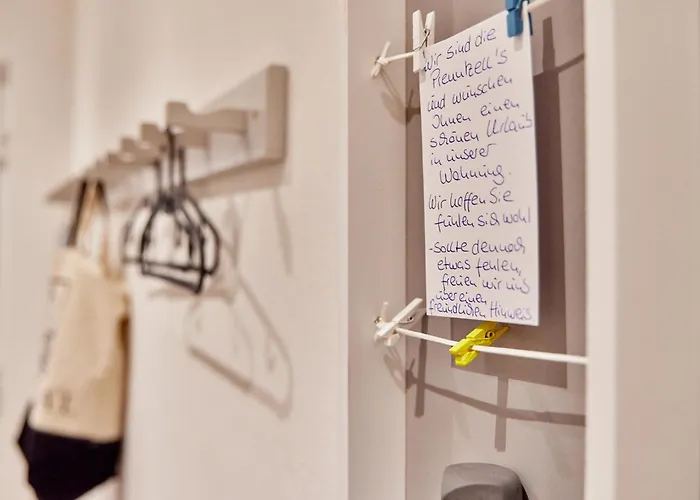 Wir sind die
Pienutzell's
und wünschen
Ihnen einen
schönen Urlaub
in unserer
Wohnung.
Wir hoffen Sie
fühlen sich wohl
-sollte dennoch
etwas fehlen,
freuen wir uns
über einen
freundlichen Hinweis